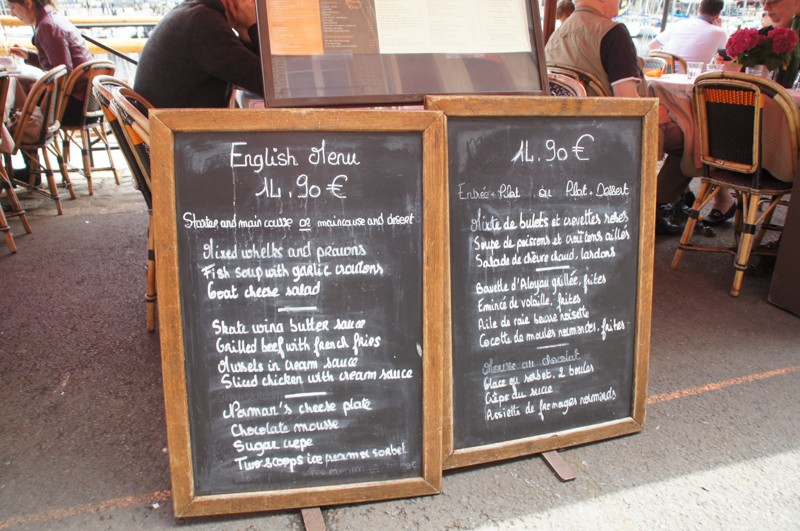 English Menu
14,90€
Starter and main course or maincourse and desert
Mixed whelks and prawns
Fish soup with garlic croutons
Goat cheese salad
Skate wing butter sauce
Grilled beef with french fries
Mussels in cream sauce
Sliced chicken with cream sauce
Norman's cheese plate
Chocolate mousse
Sugar crepe
Two scoops ice cream or sorbet
14,90€
Entrée + Plat ou Plat + Dessert
Mixte de bulots et crevettes roses
Soupe de poissons et croûtons aillés
Salade de chèvre chaud, lardons
Bavette d'Aloyau grillée, frites
Emincé de volaille, frites
Aile de raie beurre noisette
Cocotte de moules normandes, frites
Mousse au chocolat
Glace ou sorbet, 2 boules
Crêpe au sucre
Assiette de fromages normands